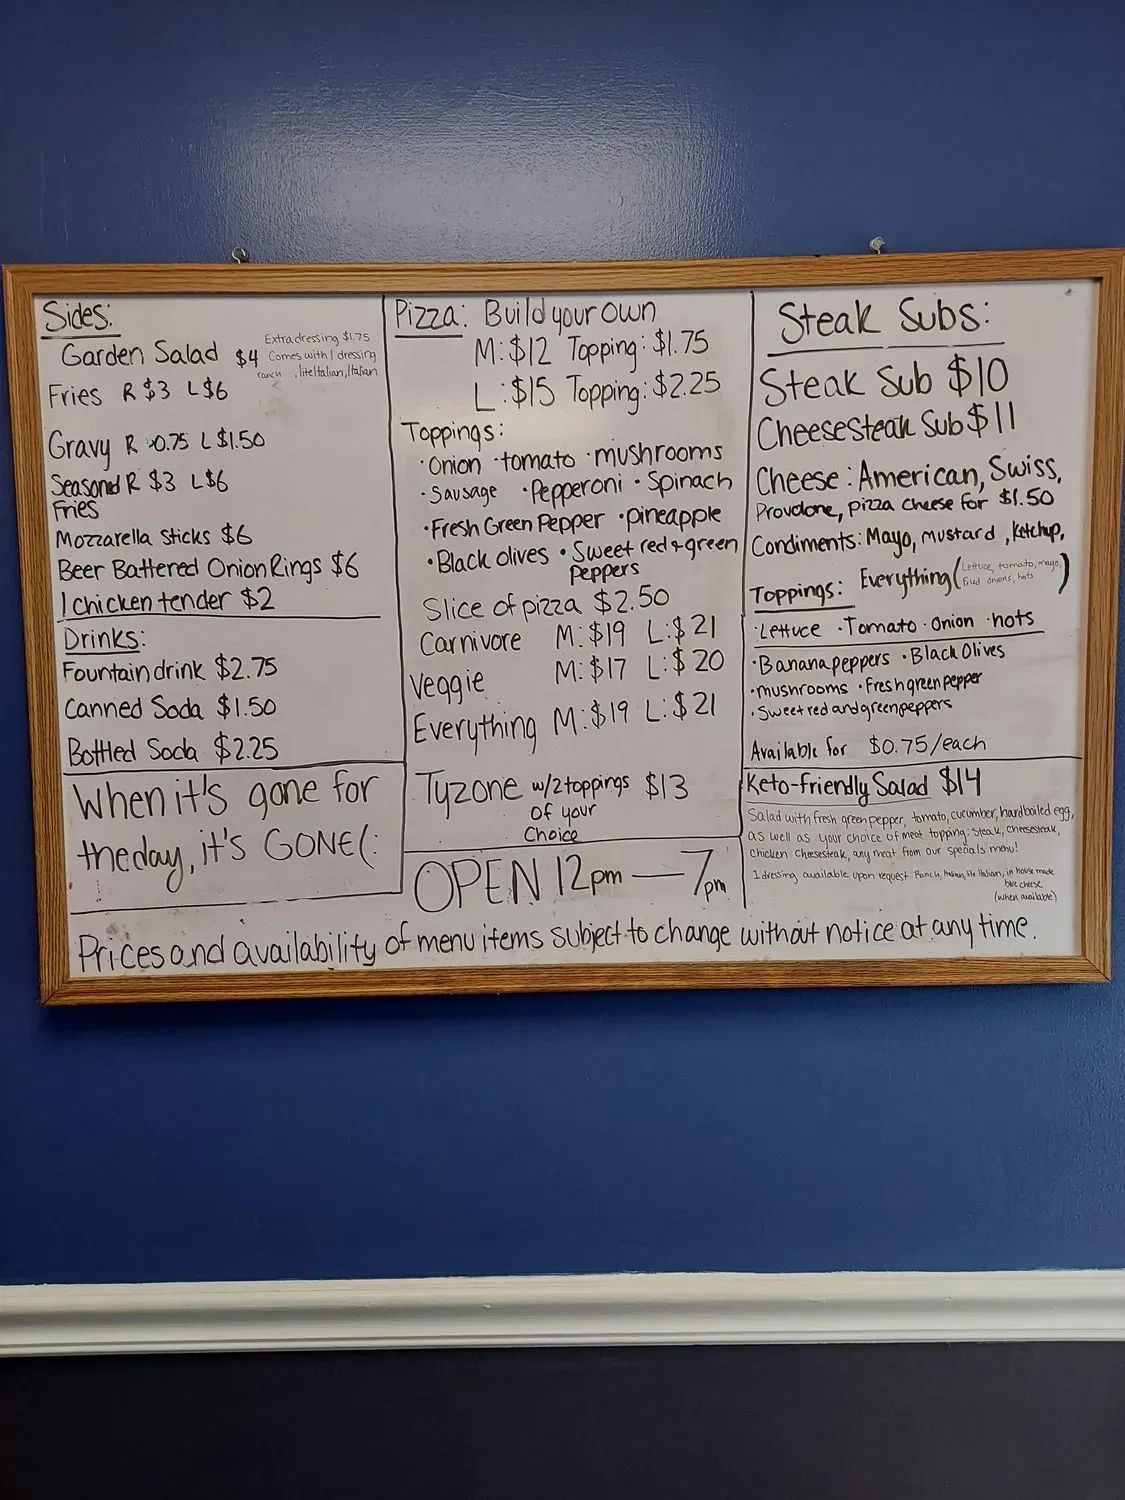 Sides:
Garden Salad $4
Extra dressing $1.75
Comes with 1 dressing
ranch , lite Italian, Italian
Fries R $3 L $6
Gravy R 0.75 L $1.50
Seasoned R $3 L $6
Fries
Mozzarella Sticks $6
Beer Battered Onion Rings $6
1 chicken tender $2
Drinks:
Fountain drink $2.75
Canned Soda $1.50
Bottled Soda $2.25
When it's gone for
the day, it's GONE(:
Pizza: Build your own
M: $12 Topping: $1.75
L: $15 Topping: $2.25
Toppings:
· Onion · tomato · mushrooms
· Sausage · Pepperoni · Spinach
· Fresh Green Pepper · pineapple
· Black olives · Sweet red + green
peppers
Slice of pizza $2.50
Carnivore M: $19 L: $21
Veggie M: $17 L: $20
Everything M: $19 L: $21
Tyzone w/2 toppings $13
of your
Choice
OPEN 12pm — 7pm
Steak Subs:
Steak Sub $10
Cheesesteak Sub $11
Cheese: American, Swiss,
Provolone, pizza cheese for $1.50
Condiments: Mayo, mustard, ketchup,
Toppings: Everything (Lettuce, tomato, mayo,
onions, hots)
· Lettuce · Tomato · Onion · hots
· Banana peppers · Black Olives
· mushrooms · Fresh green pepper
· Sweet red and green peppers
Available for $0.75/each
Keto-friendly Salad $14
Salad with fresh green pepper, tomato, cucumber, hard boiled egg,
as well as your choice of meat topping: Steak, cheesesteak,
Chicken cheesesteak, any meat from our specials menu!
1 dressing available upon request Ranch, Italian, lite Italian, in house made
blue cheese
(when available)
Prices and availability of menu items subject to change without notice at any time.